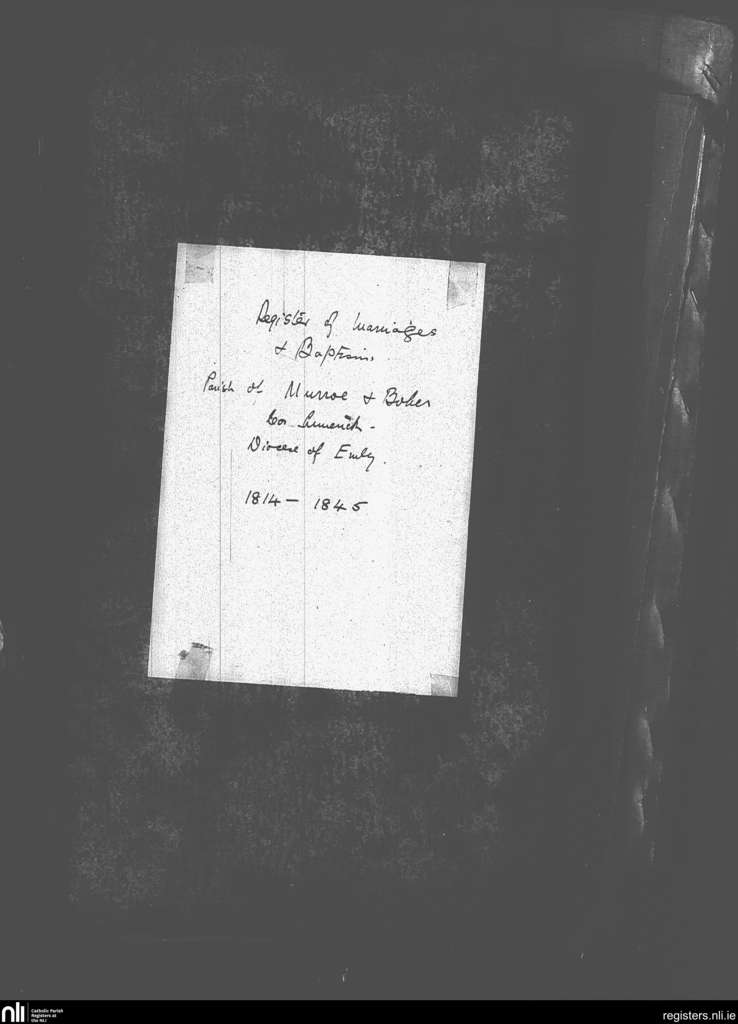 Register of Marriages
& Baptisms.
Parish of Murroe & Boher
Co. Limerick -
Diocese of Emly.
1814 - 1845
nli
Catholic Parish
Registers at
the NLI
registers.nli.ie